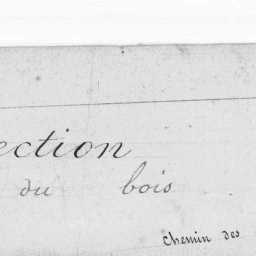 ection
du bois
chemin des